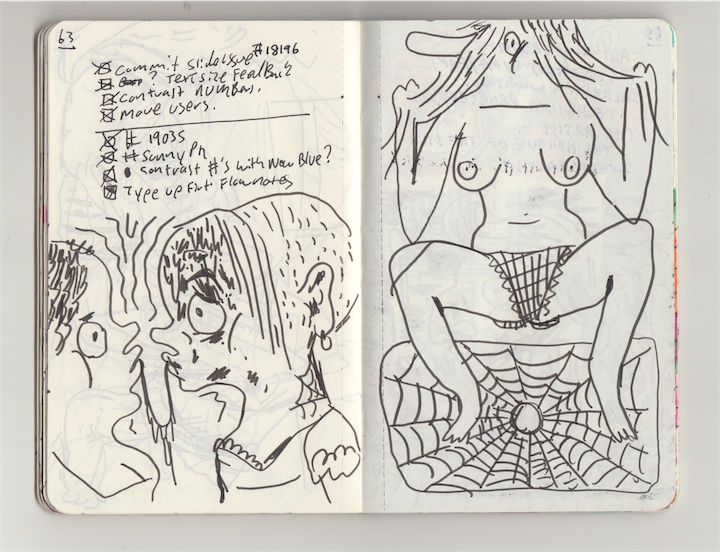 63
#18196
commit slide issue
? Text size Feedback
contrast numbers.
move users.
# 19035
# Sunny Ph
contrast #'s with New Blue?
Type up Flow notes
63